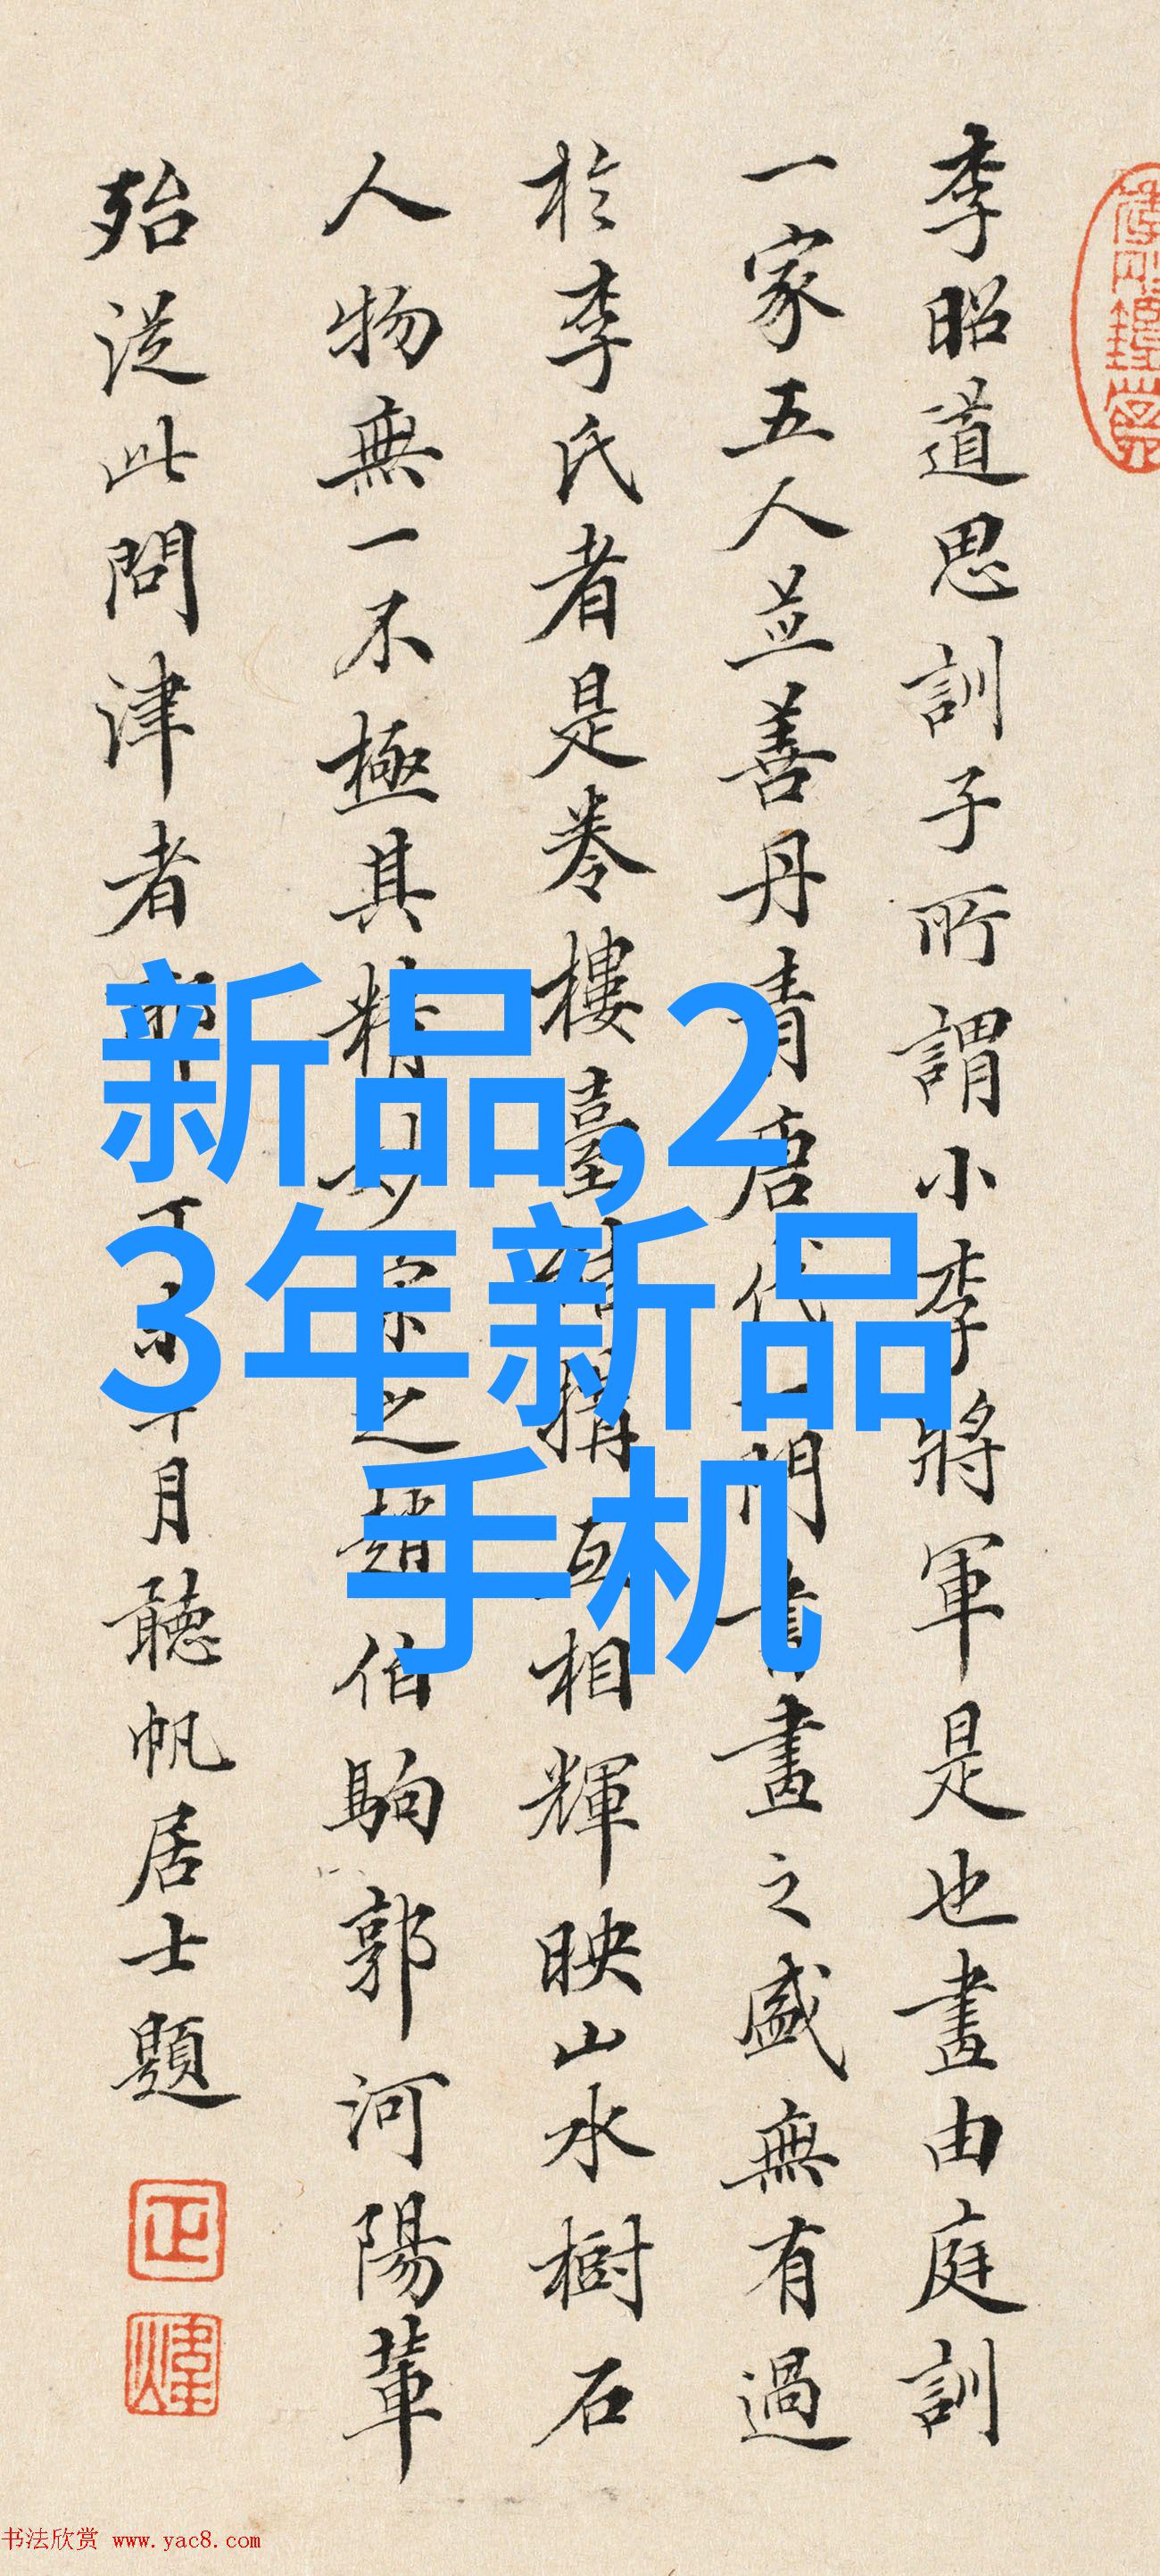 李昭道思訓子所謂小李將軍是也畫由庭訓
一家五人並善丹青唐代一門書畫之盛無有過
於李氏者是卷樓臺結構互相輝映山水樹石
人物無一不極其精妙宗之趙伯駒郭河陽輩
殆從此問津者耶丁未年月聽帆居士題
新品,2
3年新品
手机
书法欣赏 www.yac8.com